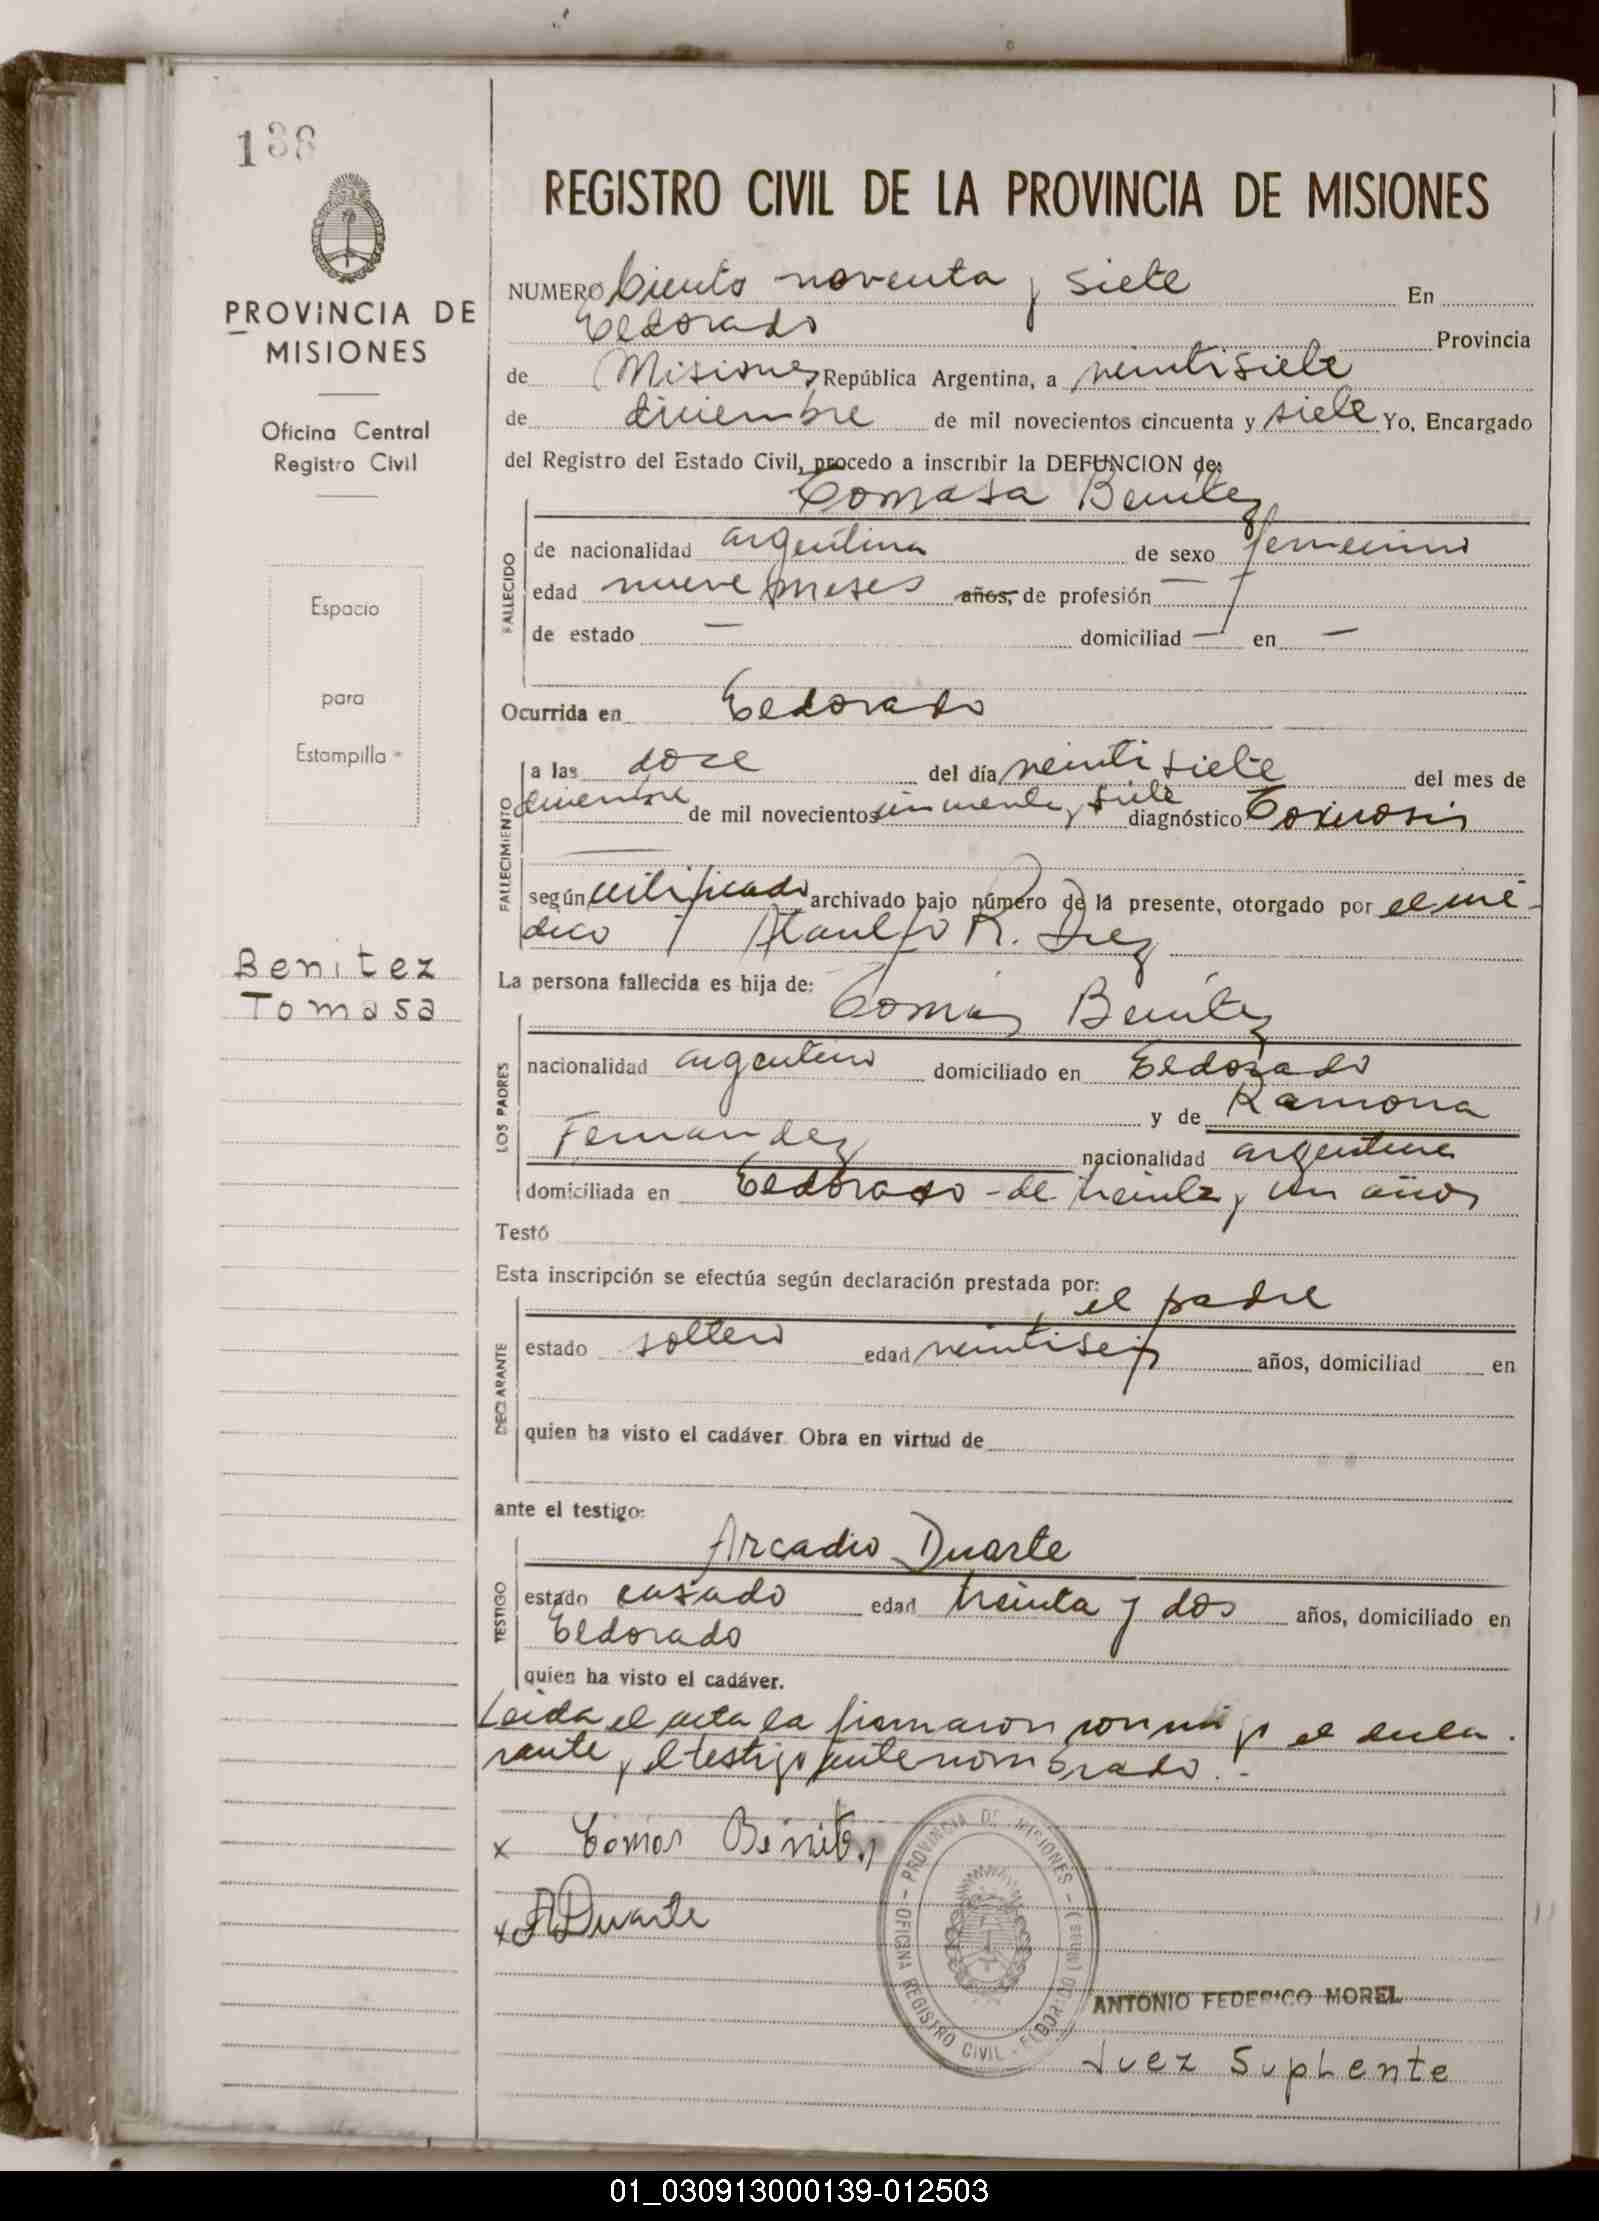 138
PROVINCIA DE
MISIONES
Oficina Central
Registro Civil
Espacio
para
Estampilla
Benitez
Tomasa
REGISTRO CIVIL DE LA PROVINCIA DE MISIONES
NUMERO Ciento noventa y siete En
Eldorado Provincia
de Misiones República Argentina, a veintisiete
de diciembre de mil novecientos cincuenta y siete Yo, Encargado
del Registro del Estado Civil, procedo a inscribir la DEFUNCION de:
Tomasa Benítez
FALLECIDO
de nacionalidad argentina de sexo femenino
edad nueve meses años, de profesión —
de estado — domiciliad — en —
Ocurrida en Eldorado
FALLECIMIENTO
a las doce del día veintisiete del mes de
diciembre de mil novecientos cincuenta y siete diagnóstico Toxicosis
según certificado archivado bajo número de la presente, otorgado por el mé-
dico Ataulfo R.
La persona fallecida es hija de:
Tomás Benítez
LOS PADRES
nacionalidad argentino domiciliado en Eldorado
y de Ramona
Fernandez nacionalidad argentina
domiciliada en Eldorado - de treinta y un años
Testó
Esta inscripción se efectúa según declaración prestada por:
el padre
DECLARANTE
estado soltero edad veintiseis años, domiciliad en
quien ha visto el cadáver. Obra en virtud de
ante el testigo:
Arcadio Duarte
TESTIGO
estado casado edad treinta y dos años, domiciliado en
Eldorado
quien ha visto el cadáver.
Leida el acta la firmaron conmigo el decla-
rante y el testigo antenombrado.-
x Tomas Benites
x A Duarte
PROVINCIA DE MISIONES - OFICINA REGISTRO CIVIL - ELDORADO
ANTONIO FEDERICO MOREL
Juez Suplente
01_030913000139-012503